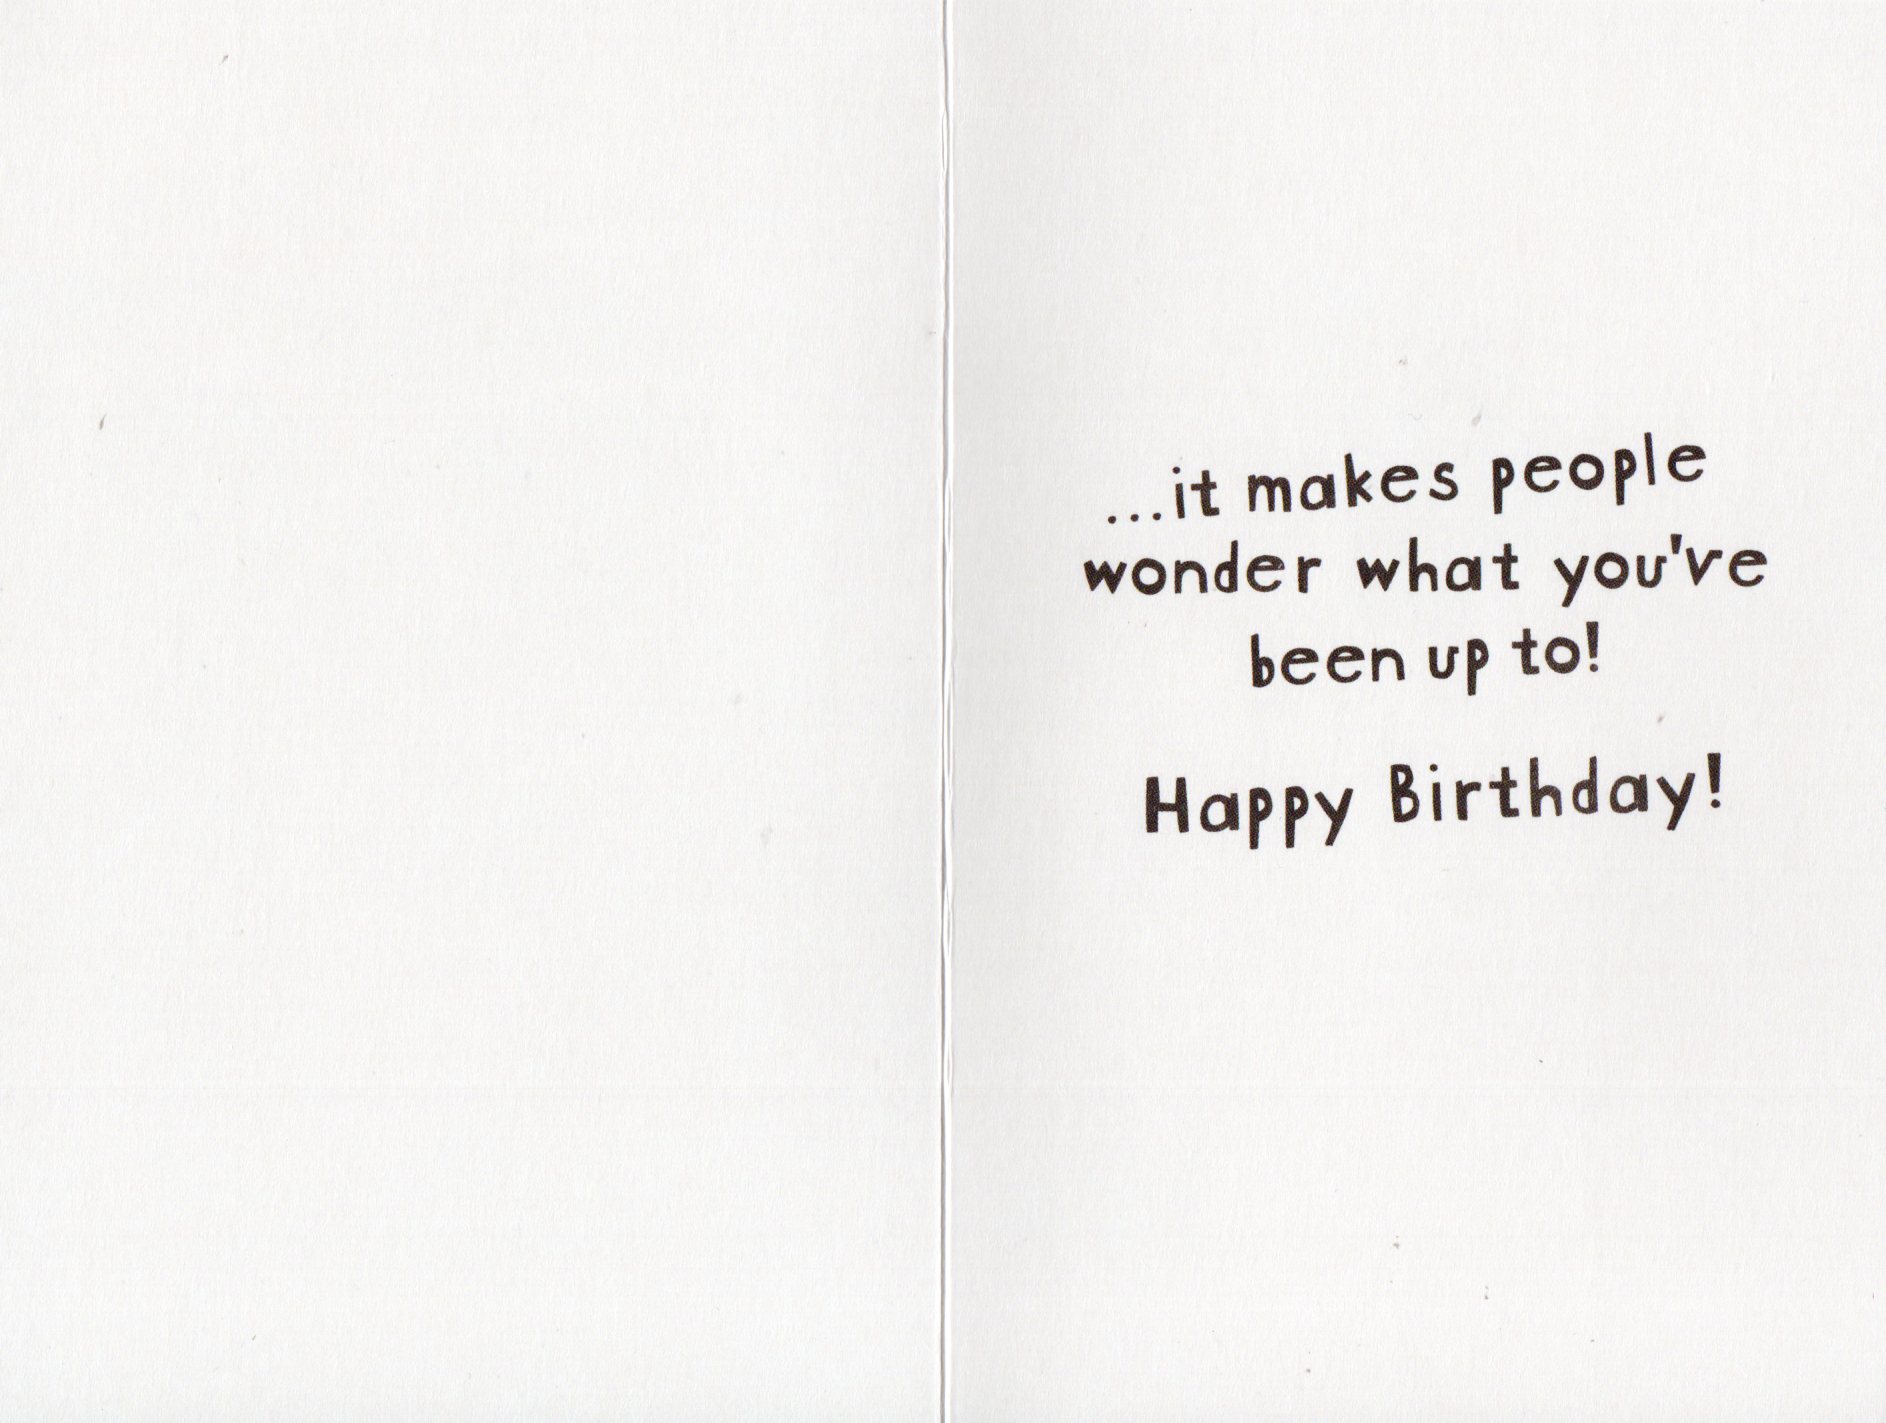 ...it makes people
wonder what you've
been up to!
Happy Birthday!